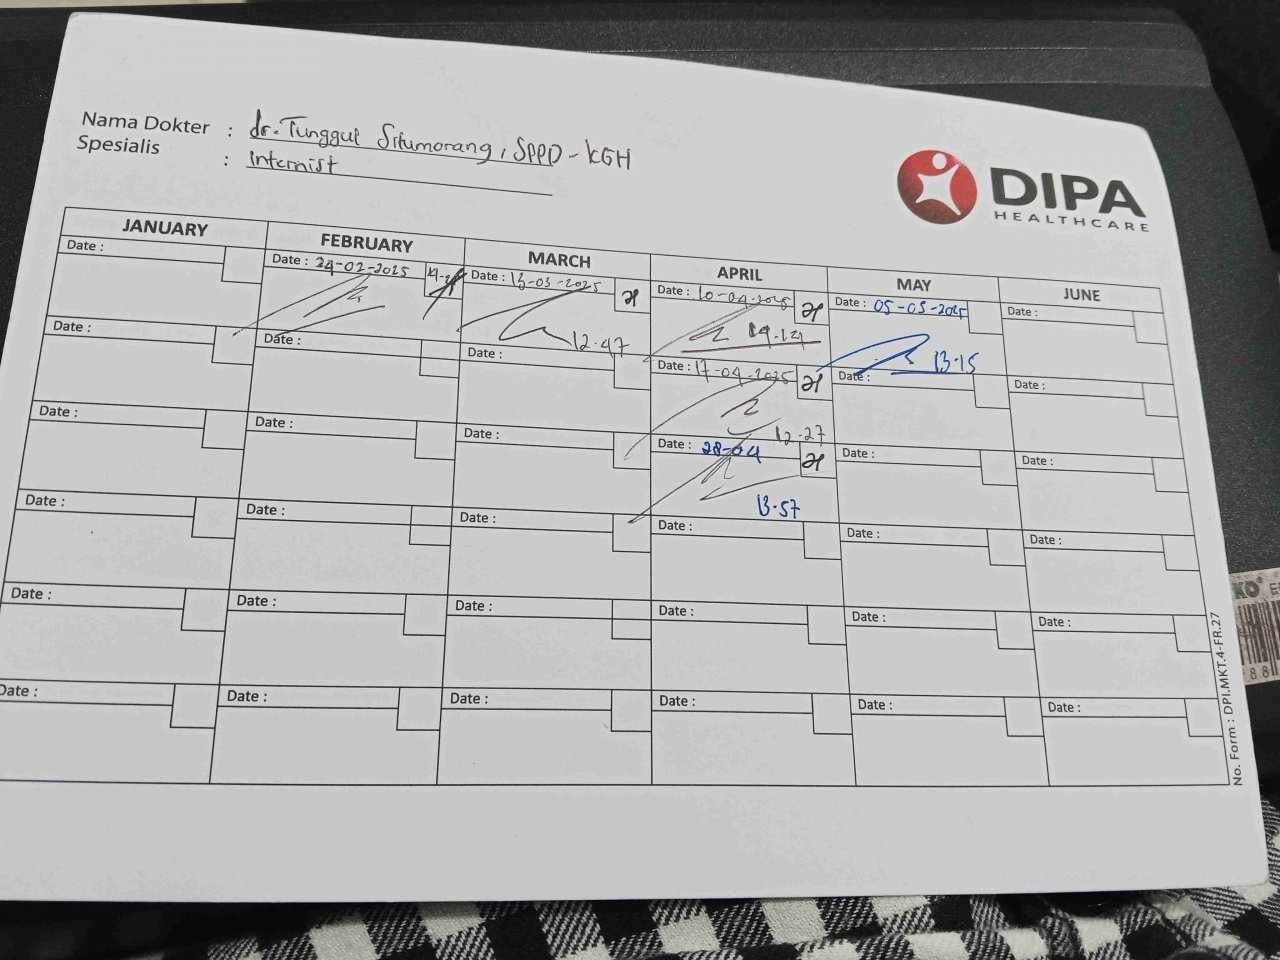 Nama Dokter : dr. Tunggul Situmorang, SPPD - KGH
Spesialis : Internist
DIPA
HEALTHCARE
JANUARY FEBRUARY MARCH APRIL MAY JUNE
Date : Date : 24-02-2025 Date : 13-03-2025 Date : 10-04-2025 Date : 05-05-2025 Date :
12.47 14.14 13.15
Date : Date : Date : Date : 17-04-2025 Date : Date :
12.27
Date : Date : Date : Date : 28-04 Date : Date :
13.57
Date : Date : Date : Date : Date : Date :
Date : Date : Date : Date : Date : Date :
Date : Date : Date : Date : Date : Date :
No. Form : DPI.MKT.4-FR.27